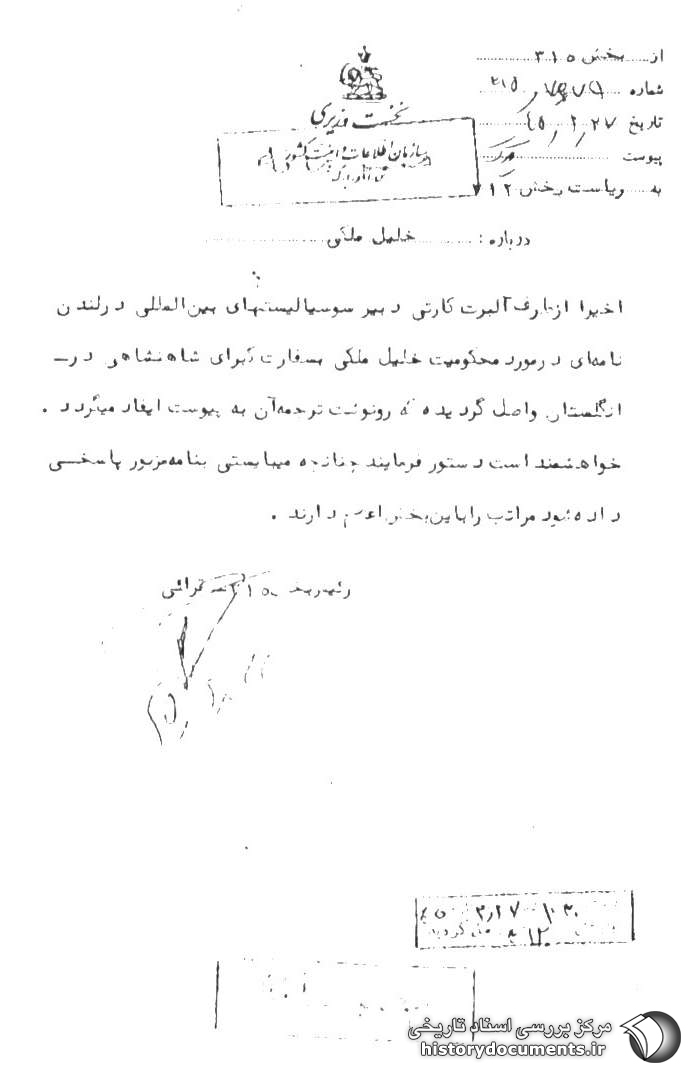 از بخش ۳۱۵
شماره ۳۱۵
تاریخ ۴۵/۲/۲۷
پیوست
به ریاست بخش ۳۱۲
نخست وزیری
سازمان اطلاعات و امنیت کشور
درباره : خلیل ملکی
اخیرا از طرف آلبرت کارتی دبیر سوسیالیستهای بین‌المللی در لندن
نامه‌ای در مورد محکومیت خلیل ملکی بسفارت کبرای شاهنشاهی در
انگلستان واصل گردیده که رونوشت ترجمه آن به پیوست ایفاد میگردد .
خواهشمند است دستور فرمایند چنانچه میبایستی بنامه مزبور پاسخی
داده شود مراتب را باین بخش اعلام دارند .
رئیس بخش ۳۱۵
گردید
مرکز بررسی اسناد تاریخی
historydocuments.ir